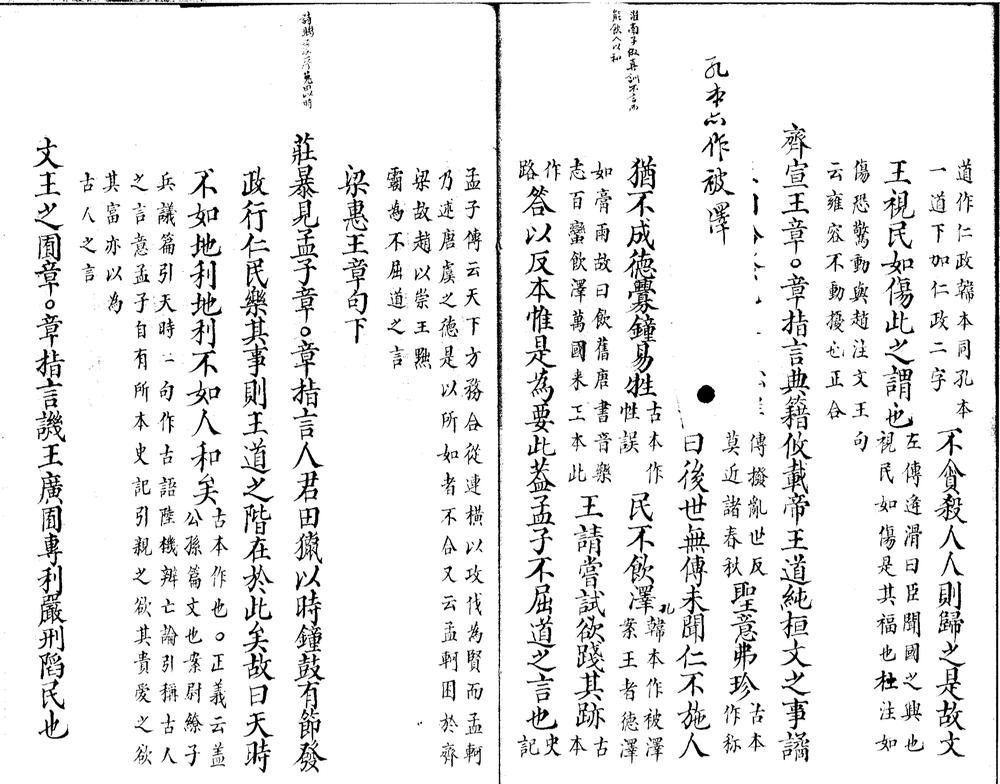 道作仁政韓本同孔本
一道下加仁政二字
不貪殺人人則歸之是故文
王視民如傷此之謂也
左傳逢滑曰臣聞國之興也
視民如傷是其福也杜注如
傷恐驚動與趙注文王句
云雍容不動擾也正合
齊宣王章○章指言典籍攸載帝王道純桓文之事譎
傳撥亂世反
莫近諸春秋
聖意弗珍
古本
作称
孔本亦作被澤
曰後世無傳未聞仁不施人
猶不成德釁鐘易牲
古本作
性誤
民不飲澤
孔韓本作被澤
案王者德澤
如膏雨故曰飲舊唐書音樂
志百蠻飲澤萬國來王本此
王請嘗試欲踐其跡
古本
作路
答以反本惟是為要此蓋孟子不屈道之言也
史記
淮南子
能飲人以和
孟子傳云天下方務合從連橫以攻伐為賢而孟軻
乃述唐虞之德是以所如者不合又云孟軻困於齊
梁故趙以崇王黜
霸為不屈道之言
梁惠王章句下
莊暴見孟子章○章指言人君田獵以時鐘鼓有節發
政行仁民樂其事則王道之階在於此矣故曰天時
不如地利地利不如人和矣
古本作也○正義云蓋
公孫篇文也案尉繚子
兵議篇引天時二句作古語陸機辨亡論引稱古人
之言意孟子自有所本史記引親之欲其貴愛之欲
其富亦以為
古人之言
文王之囿章○章指言譏王廣囿專利嚴刑陷民也